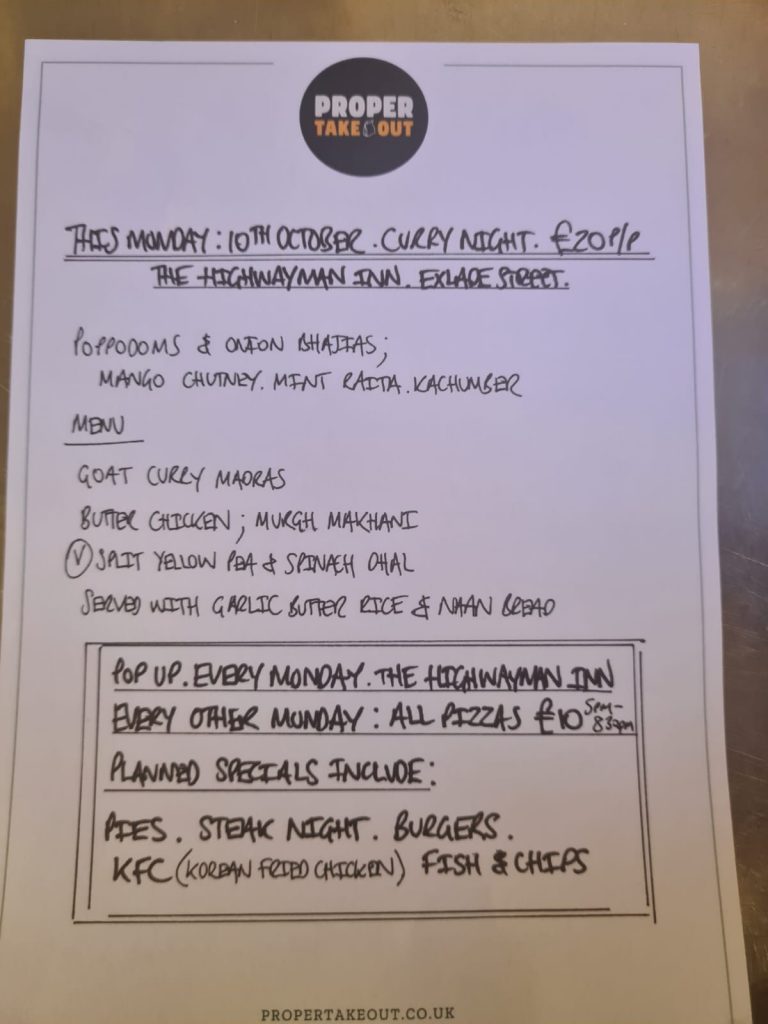 PROPER
TAKE OUT
THIS MONDAY: 10TH OCTOBER. CURRY NIGHT. £20P/P
THE HIGHWAYMAN INN. EXLADE STREET.
POPPODOMS & ONION BHAJIAS;
MANGO CHUTNEY. MINT RAITA. KACHUMBER
MENU
GOAT CURRY MADRAS
BUTTER CHICKEN; MURGH MAKHANI
(V) SPLIT YELLOW PEA & SPINACH DHAL
SERVED WITH GARLIC BUTTER RICE & NAAN BREAD
POP UP. EVERY MONDAY. THE HIGHWAYMAN INN
EVERY OTHER MONDAY: ALL PIZZAS £10 5pm-8:30pm
PLANNED SPECIALS INCLUDE:
PIES. STEAK NIGHT. BURGERS.
KFC (KOREAN FRIED CHICKEN) FISH & CHIPS
PROPERTAKEOUT.CO.UK